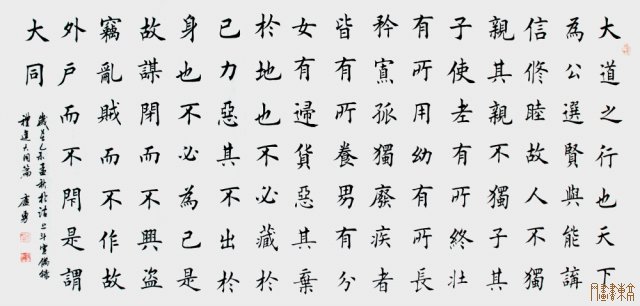 大道之行也天下
為公選賢與能講
信修睦故人不獨
親其親不獨子其
子使老有所終壯
有所用幼有所長
矜寡孤獨廢疾者
皆有所養男有分
女有歸貨惡其棄
於地也不必藏於
己力惡其不出於
身也不必為己是
故謀閉而不興盜
竊亂賊而不作故
外戶而不閉是謂
大同
歲在乙未孟秋於
禮運大同篇 崔勇